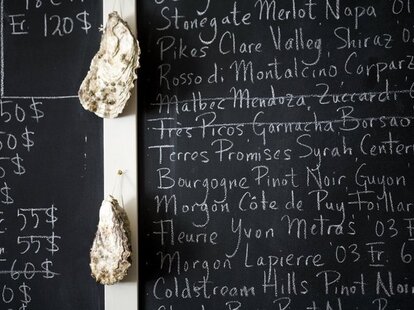 E 120$
50$
50$
55$
55$
60$
50$
Stonegate Merlot Napa 01
Pikes Clare Valleg, Shiraz 03
Rosso di Montalcino Corparz
Malbec Mendoza, Zuccardi
Tres Picos Garnacha Borsao
Terres Promises Syrah, Center
Bourgogne Pinot Noir Guyon
Morgon Côte de Puy-Foillar
Fleurie Yvon Metras '03 Fr.
Morgon Lapierre '03 Fr. 6
Coldstream Hills Pinot No